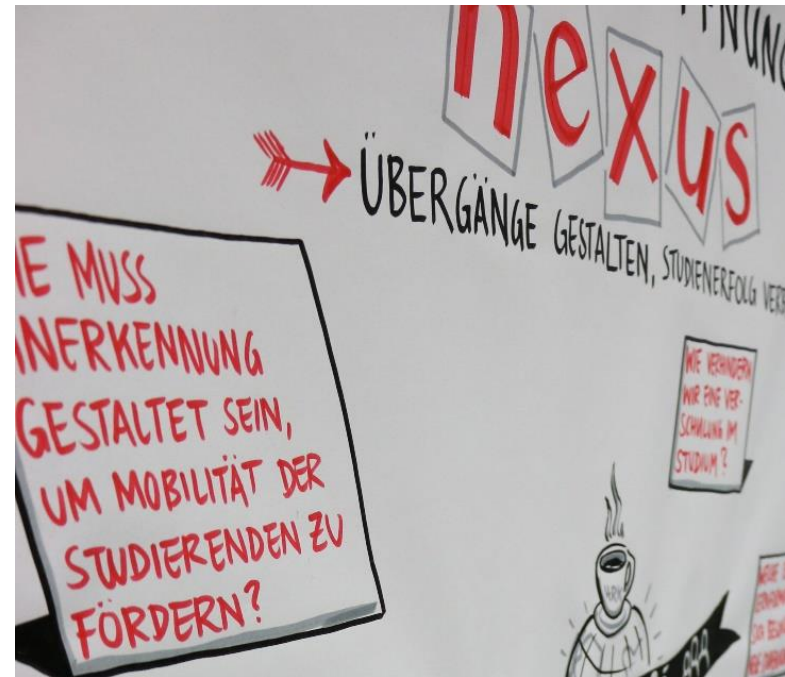 nexus
ÜBERGÄNGE GESTALTEN, STUDIENERFOLG
MUSS
GESTALTET SEIN,
UM MOBILITÄT DER
STUDIERENDEN ZU
FÖRDERN?
WIE VERHINDERN
WIR EINE VER-
SCHULUNG IM
STUDIUM?
HRK